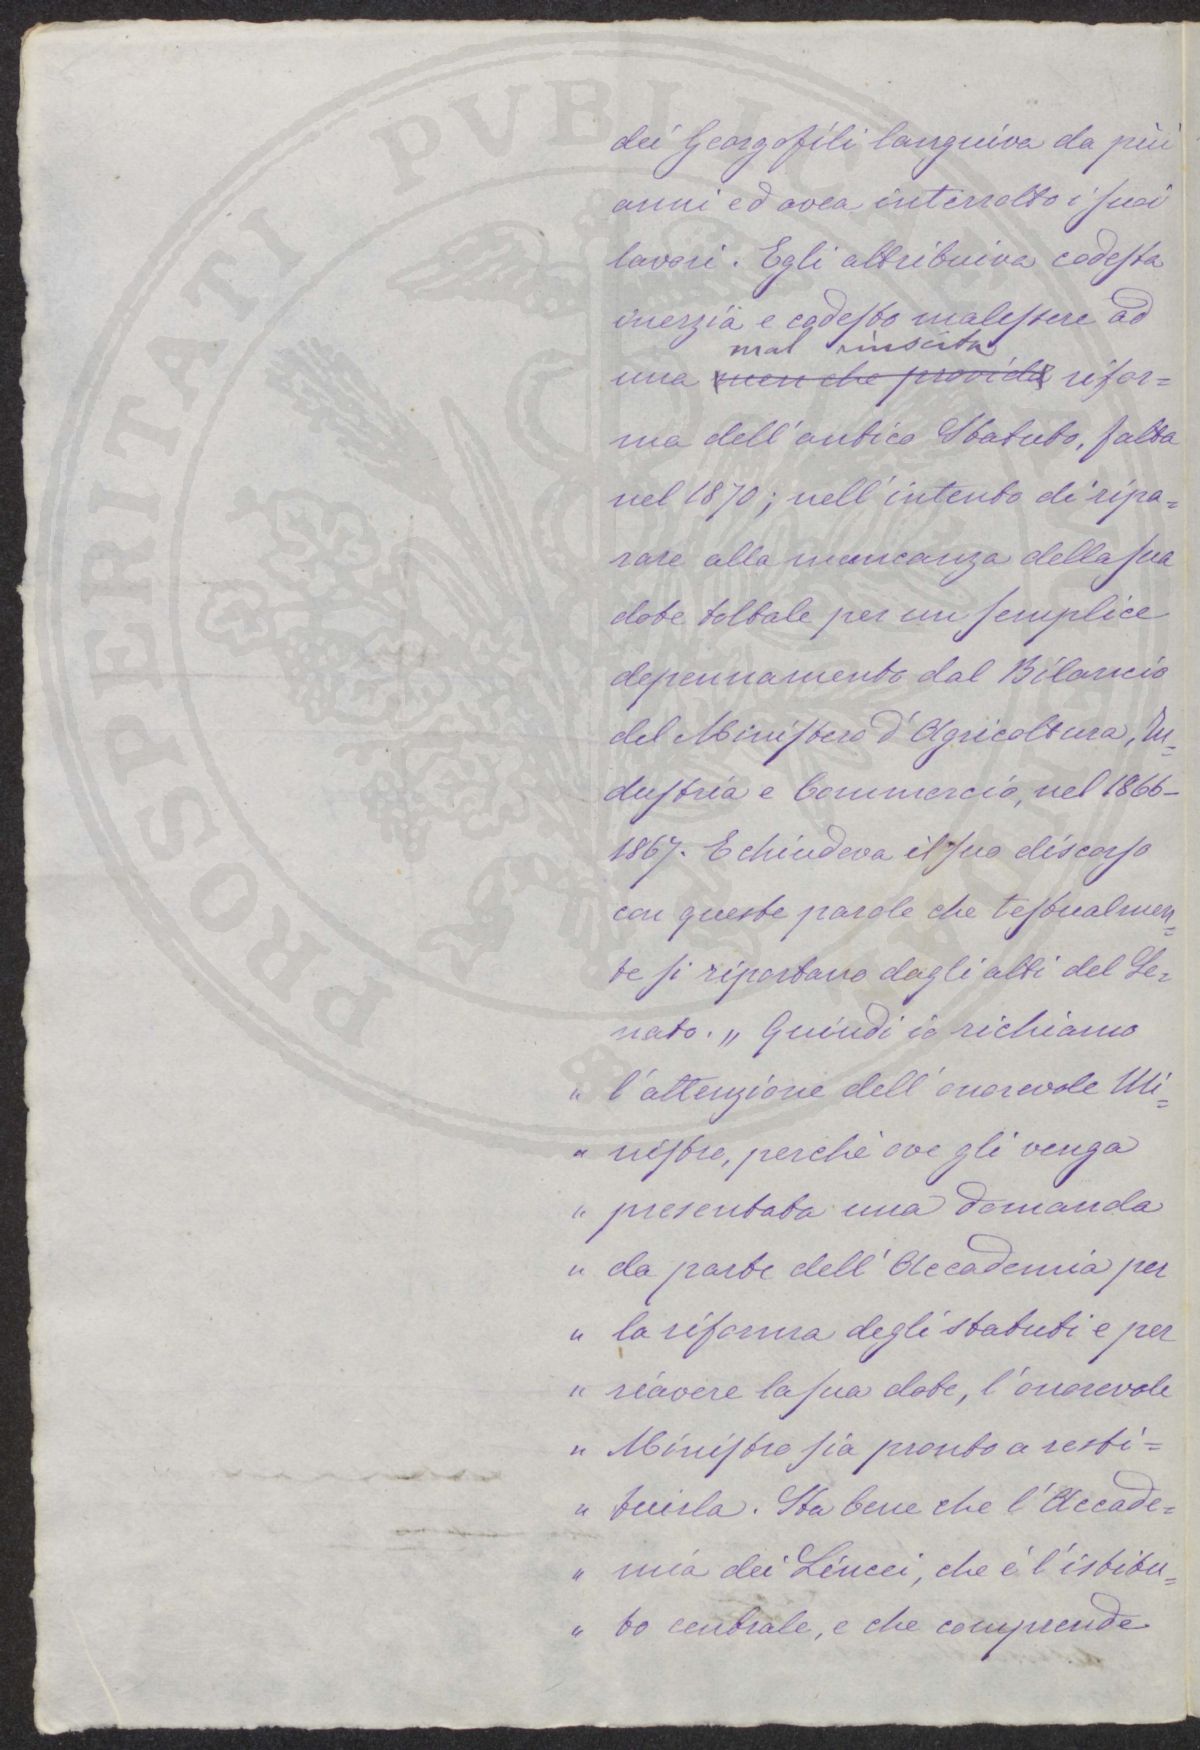 dei Georgofili languiva da più
anni ed avea interrotto i suoi
lavori. Egli attribuiva codesta
inerzia e codesto malessere ad
mal riuscita
una men che provida rifor=
ma dell'antico Statuto, fatta
nel 1870; nell'intento di ripa=
rare alla mancanza della sua
dote toltale per un semplice
depennamento dal Bilancio
del Ministero d'Agricoltura, In=
dustria e Commercio, nel 1866-
1867. E chiudeva il suo discorso
con queste parole che testualmen=
te si riportano dagli atti del Se=
nato. „ Quindi io richiamo
" l'attenzione dell'onorevole Mi=
" nistro, perchè ove gli venga
" presentata una domanda
" da parte dell'Accademia per
" la riforma degli statuti e per
" riavere la sua dote, l'onorevole
" Ministro sia pronto a resti=
" tuirla. Sta bene che l'Accade=
" mia dei Lincei, che è l'istitu=
" to centrale, e che comprende
PROSPERITATI PVBLICAE AVGENDAE